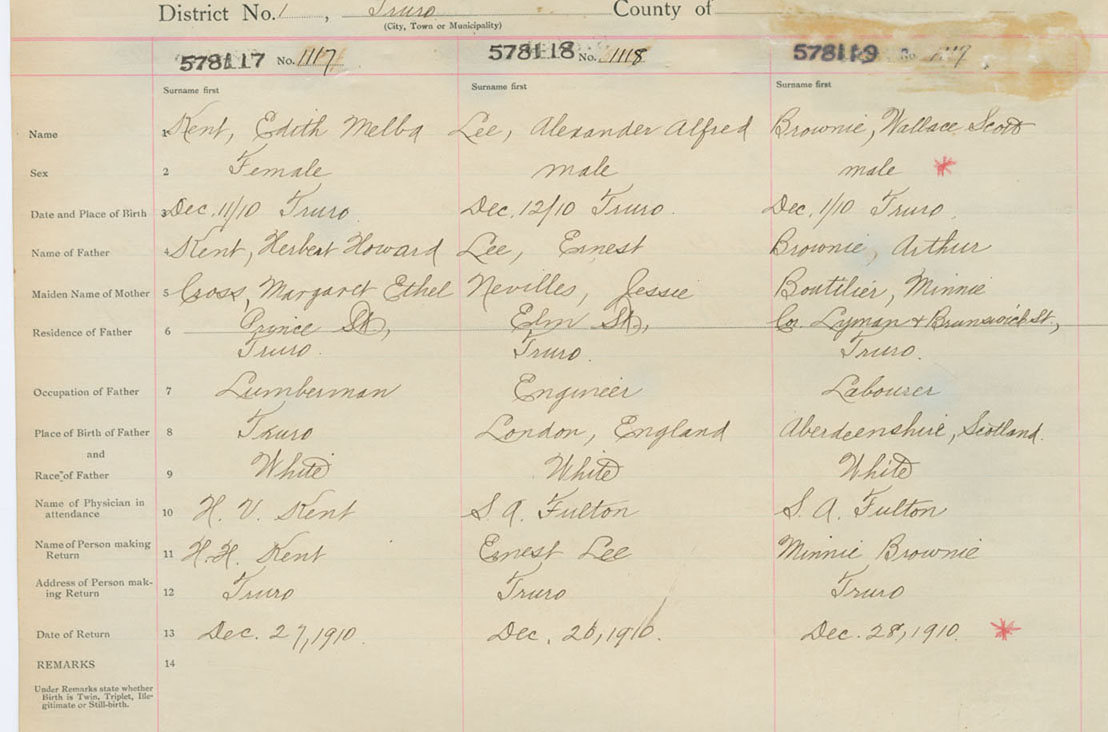 District No. 1, Truro County of
(City, Town or Municipality)
578117 No. 1117 578118 No. 1118 578119 No.
Surname first Surname first Surname first
Name 1 Kent, Edith Melba Lee, Alexander Alfred Brownie, Wallace Scott
Sex 2 Female male male *
Date and Place of Birth 3 Dec. 11/10 Truro. Dec. 12/10 Truro. Dec. 1/10 Truro.
Name of Father 4 Kent, Herbert Howard Lee, Ernest Brownie, Arthur
Maiden Name of Mother 5 Cross, Margaret Ethel Nevilles, Jessie Boutilier, Minnie
Residence of Father 6 Prince St., Elm St., Cor. Lyman + Brunswick St.,
Truro. Truro. Truro.
Occupation of Father 7 Lumberman Engineer Labourer
Place of Birth of Father 8 Truro London, England Aberdeenshire, Scotland.
and
Race of Father 9 White White White
Name of Physician in
attendance 10 H. V. Kent S. A. Fulton S. A. Fulton
Name of Person making
Return 11 H. H. Kent Ernest Lee Minnie Brownie
Address of Person mak-
ing Return 12 Truro Truro Truro
Date of Return 13 Dec. 27, 1910. Dec. 26, 1910. Dec. 28, 1910. *
REMARKS 14
Under Remarks state whether
Birth is Twin, Triplet, Ille-
gitimate or Still-birth.